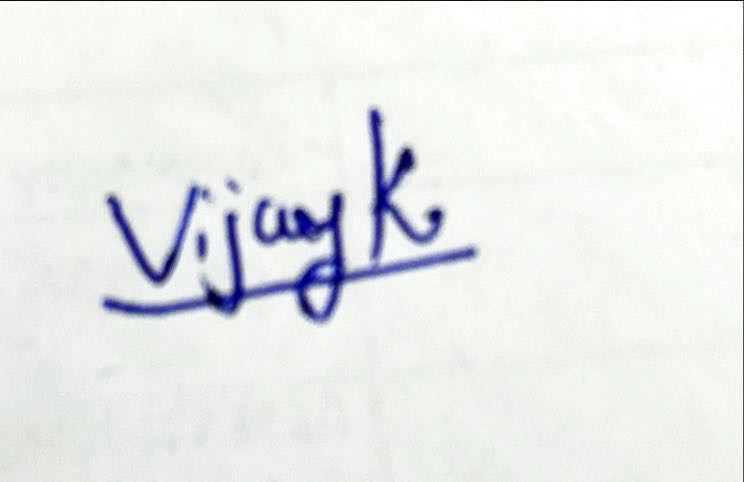 Vijay K